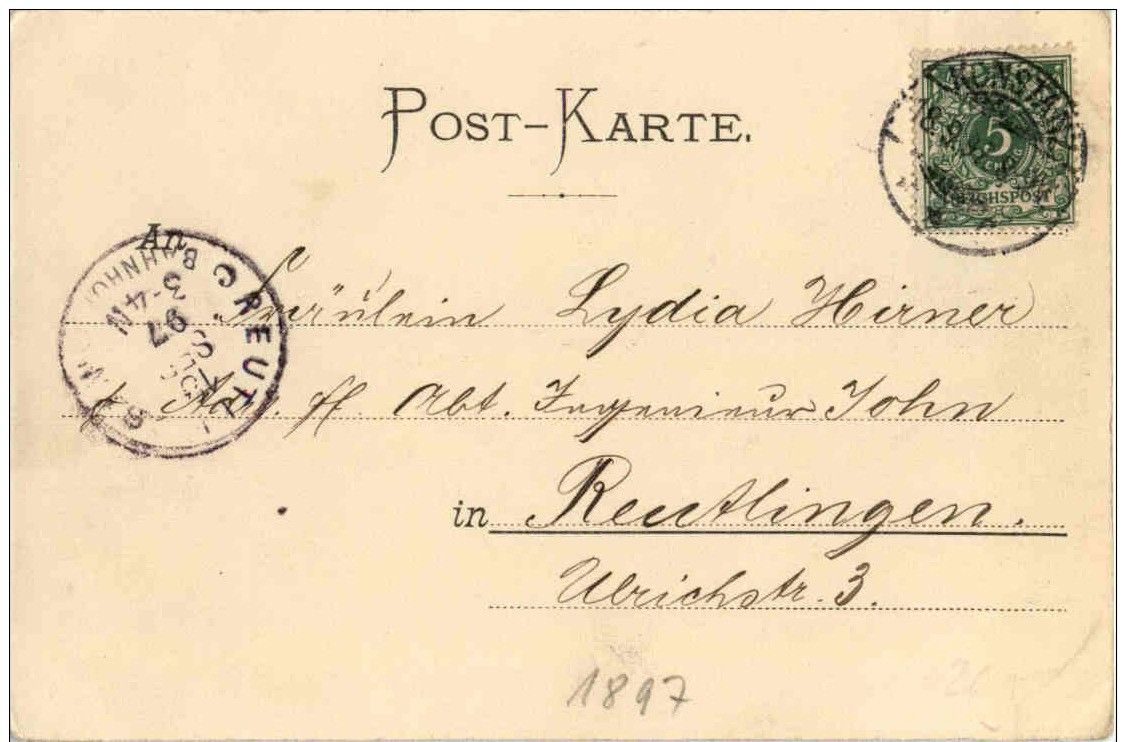 POST-KARTE.
KONSTANZ
5
REICHSPOST
An
BAHNHOF
REUTL
3-4N
97
Fräulein Lydia Hirner
Abt. Ingenieur John
in Reutlingen.
Ulrichstr. 3.
1897